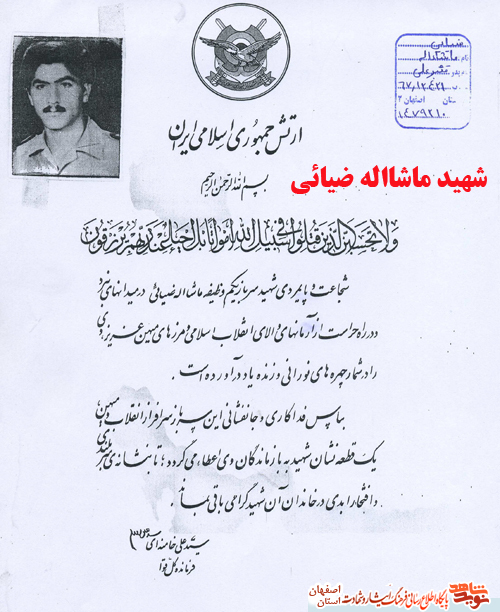 ارتش جمهوری اسلامی ایران
بسم الله الرحمن الرحیم
شهید ماشااله ضیائی
ولا تحسبن الذین قتلوا فی سبیل الله امواتا بل احیاء عند ربهم یرزقون
شجاعت و پایمردی شهید سرباز یکم وظیفه ماشااله ضیائی در میدانهای نبرد
در راه حراست از آرمانهای والای انقلاب اسلامی و مرزهای میهن عزیز، وی
را در شمار چهره های نورانی و زنده یاد درآورده است.
بپاس فداکاری و جانفشانی این سرباز سرافراز انقلاب و میهن،
یک قطعه نشان شهید به بازماندگان وی اعطاء می گردد؛ تا بنشانه ی سربلندی
و افتخار ابدی در خاندان آن شهید گرامی باقی بماند.
سید علی خامنه ای
فرمانده کل قوا
نام ماشااله
نام پدر
استان اصفهان ۲
۱۴۷۹۲۱۰
نوید شاهد
پایگاه اطلاع رسانی فرهنگ ایثار و شهادت
استان اصفهان